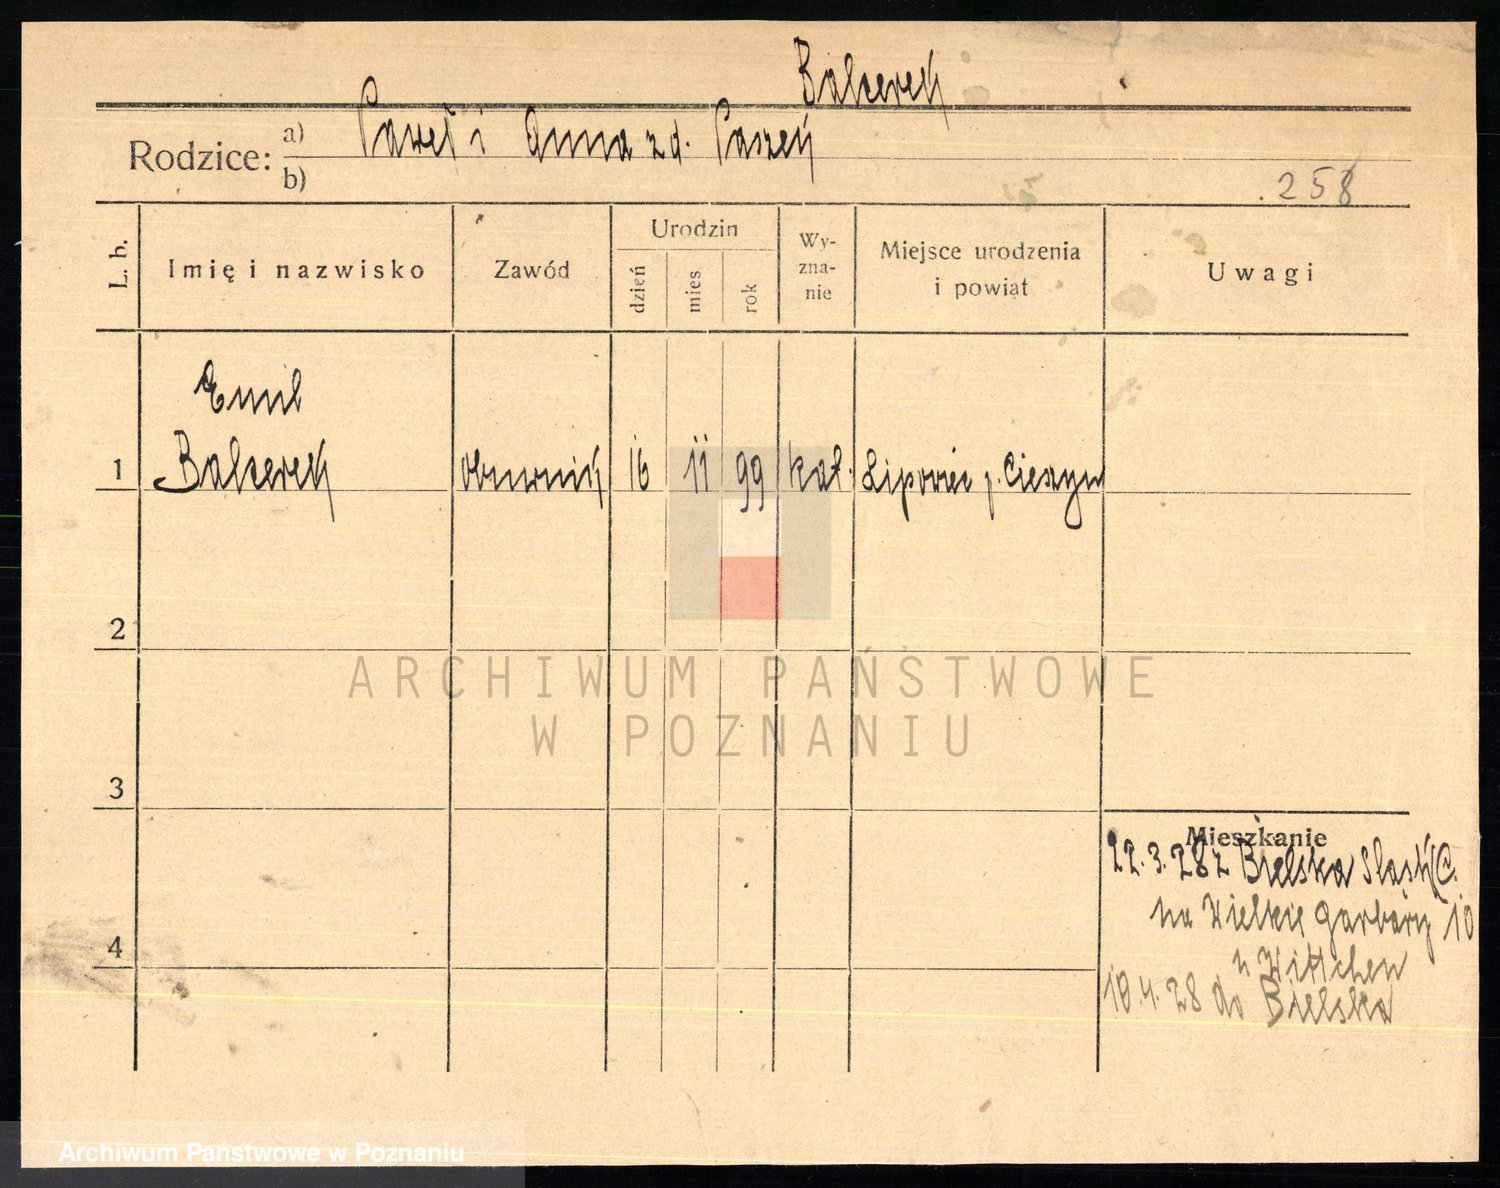 Balcerek
Rodzice: a) Paweł i Anna z d. Paszek
b)
258
L. b.
Imię i nazwisko
Zawód
Urodzin
dzień
mies
rok
Wy-
zna-
nie
Miejsce urodzenia
i powiat
Uwagi
Emil
1 Balcerek obuwnik 16 11 99 kat. Lipowiec p. Cieszyn
2
3
4
Mieszkanie
22.3.28 z Bielska
na Wielkie Garbary 10
u Wittchen
10.4.28 do Bielska
ARCHIWUM PAŃSTWOWE
W POZNANIU
Archiwum Państwowe w Poznaniu